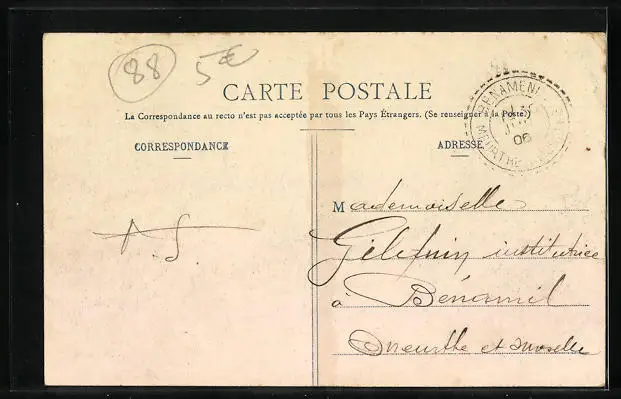 88 5€
CARTE POSTALE
La Correspondance au recto n'est pas acceptée par tous les Pays Étrangers. (Se renseigner à la Poste.)
CORRESPONDANCE
ADRESSE
BENAMENIL
06
MEURTHE
Mademoiselle
institutrice
à Bénamnil
Meurthe et Moselle